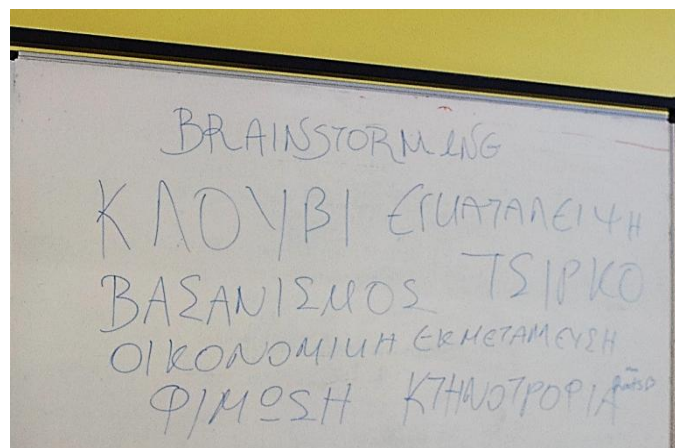 BRAINSTORMING
ΚΛΟΥΒΙ ΕΓΚΑΤΑΛΕΙΨΗ
ΒΑΣΑΝΙΣΜΟΣ ΤΣΙΡΚΟ
ΟΙΚΟΝΟΜΙΚΗ ΕΚΜΕΤΑΛΛΕΥΣΗ
ΦΙΜΩΣΗ ΚΤΗΝΟΤΡΟΦΙΑ